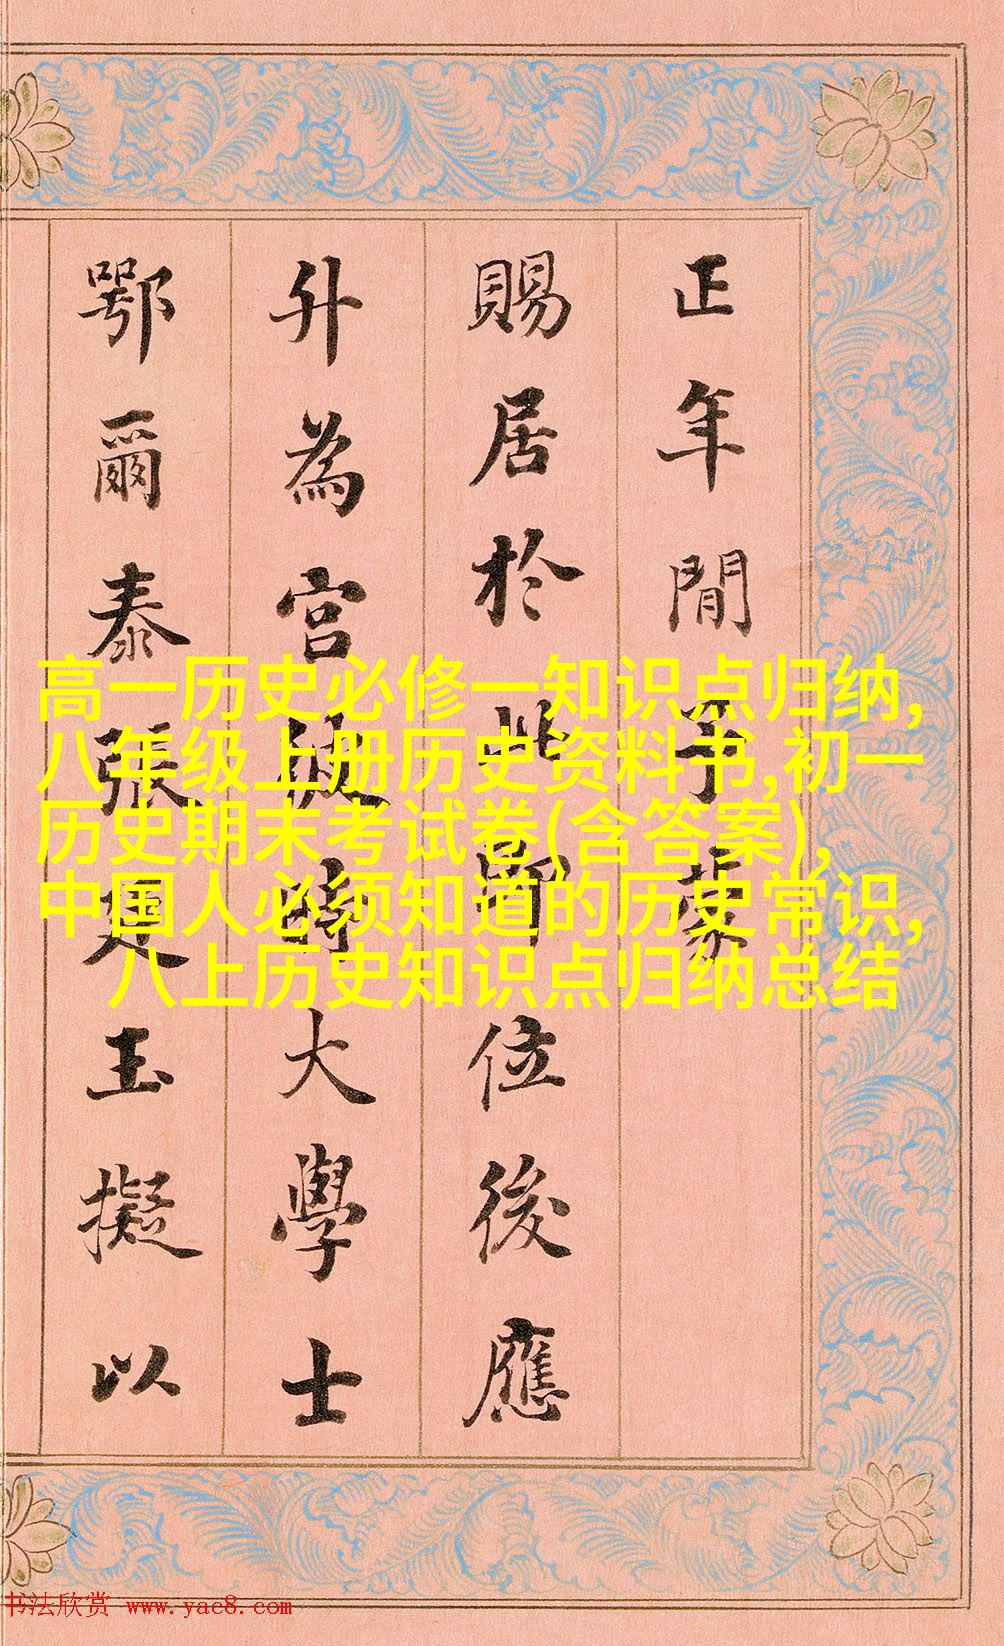 正年間予蒙
賜居於此即位後應
升為宮彼時大學士
鄂爾泰張廷玉擬以
高一历史必修一知识点归纳,
八年级上册历史资料书,初一
历史期末考试卷(含答案),
中国人必须知道的历史常识,
八上历史知识点归纳总结
书法欣赏 www.yac8.com